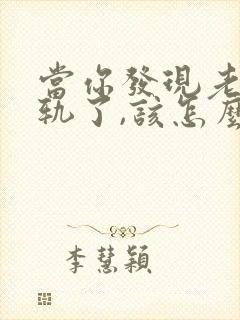 當你發現老
軌了,該怎麼
李慧穎